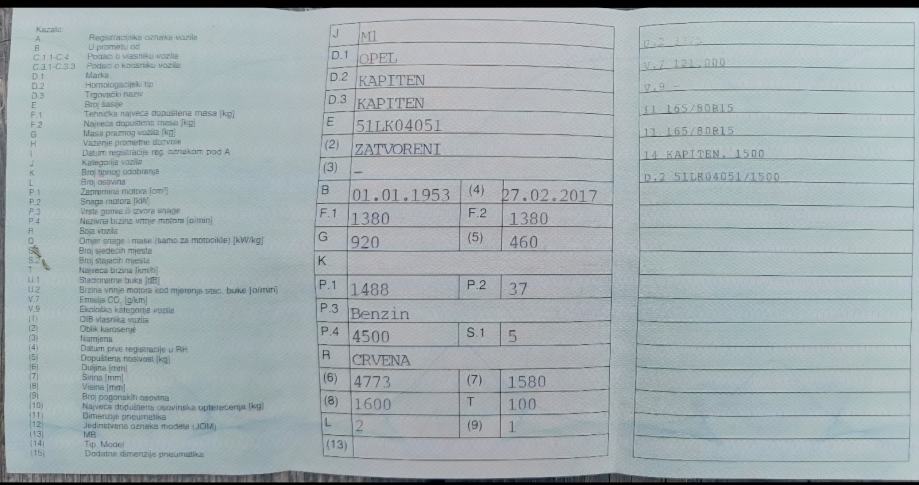 Kazalo:
A Registracijska oznaka vozila
B U prometu od
C.1.1-C.4 Podaci o vlasniku vozila
C.3.1-C.3.3 Podaci o korisniku vozila
D.1 Marka
D.2 Homologacijski tip
D.3 Trgovački naziv
E Broj šasije
F.1 Tehnička najveća dopuštena masa [kg]
F.2 Najveća dopuštena masa [kg]
G Masa praznog vozila [kg]
H Važenje prometne dozvole
I Datum registracije reg. oznakom pod A
J Kategorija vozila
K Broj tipnog odobrenja
L Broj osovina
P.1 Zapremina motora [cm³]
P.2 Snaga motora [kW]
P.3 Vrsta goriva ili izvora snage
P.4 Nazivna brzina vrtnje motora [o/min]
R Boja vozila
Q Omjer snage i mase (samo za motocikle) [kW/kg]
Broj sjedećih mjesta
S.2 Broj stajaćih mjesta
T Najveća brzina [km/h]
U.1 Stacionarna buka [dB]
U.2 Brzina vrtnje motora kod mjerenja stac. buke [o/min]
V.7 Emisija CO₂ [g/km]
V.9 Ekološka kategorija vozila
(1) OIB vlasnika vozila
(2) Oblik karoserije
(3) Namjena
(4) Datum prve registracije u RH
(5) Dopuštena nosivost [kg]
(6) Duljina [mm]
(7) Širina [mm]
(8) Visina [mm]
(9) Broj pogonskih osovina
(10) Najveća dopuštena osovinska opterećenja [kg]
(11) Dimenzije pneumatika
(12) Jedinstvena oznaka modela (JOM)
(13) MB
(14) Tip, Model
(15) Dodatne dimenzije pneumatika
J M1
D.1 OPEL
D.2 KAPITEN
D.3 KAPITEN
E 51LK04051
(2) ZATVORENI
(3) –
B 01.01.1953 (4) 27.02.2017
F.1 1380 F.2 1380
G 920 (5) 460
K
P.1 1488 P.2 37
P.3 Benzin
P.4 4500 S.1 5
R CRVENA
(6) 4773 (7) 1580
(8) 1600 T 100
L 2 (9) 1
(13)
V.7 121.000
V.9 –
11 165/80R15
11 165/80R15
14 KAPITEN, 1500
D.2 51LK04051/1500